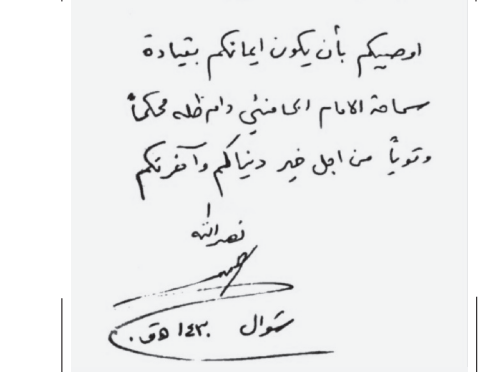 اوصيكم بأن يكون ايمانكم بقيادة
سماحة الامام الخامنئي دام ظله محكماً
وقوياً من اجل خير دنياكم وآخرتكم
نصرالله
شوال ١٤٣٠ هـ ق.